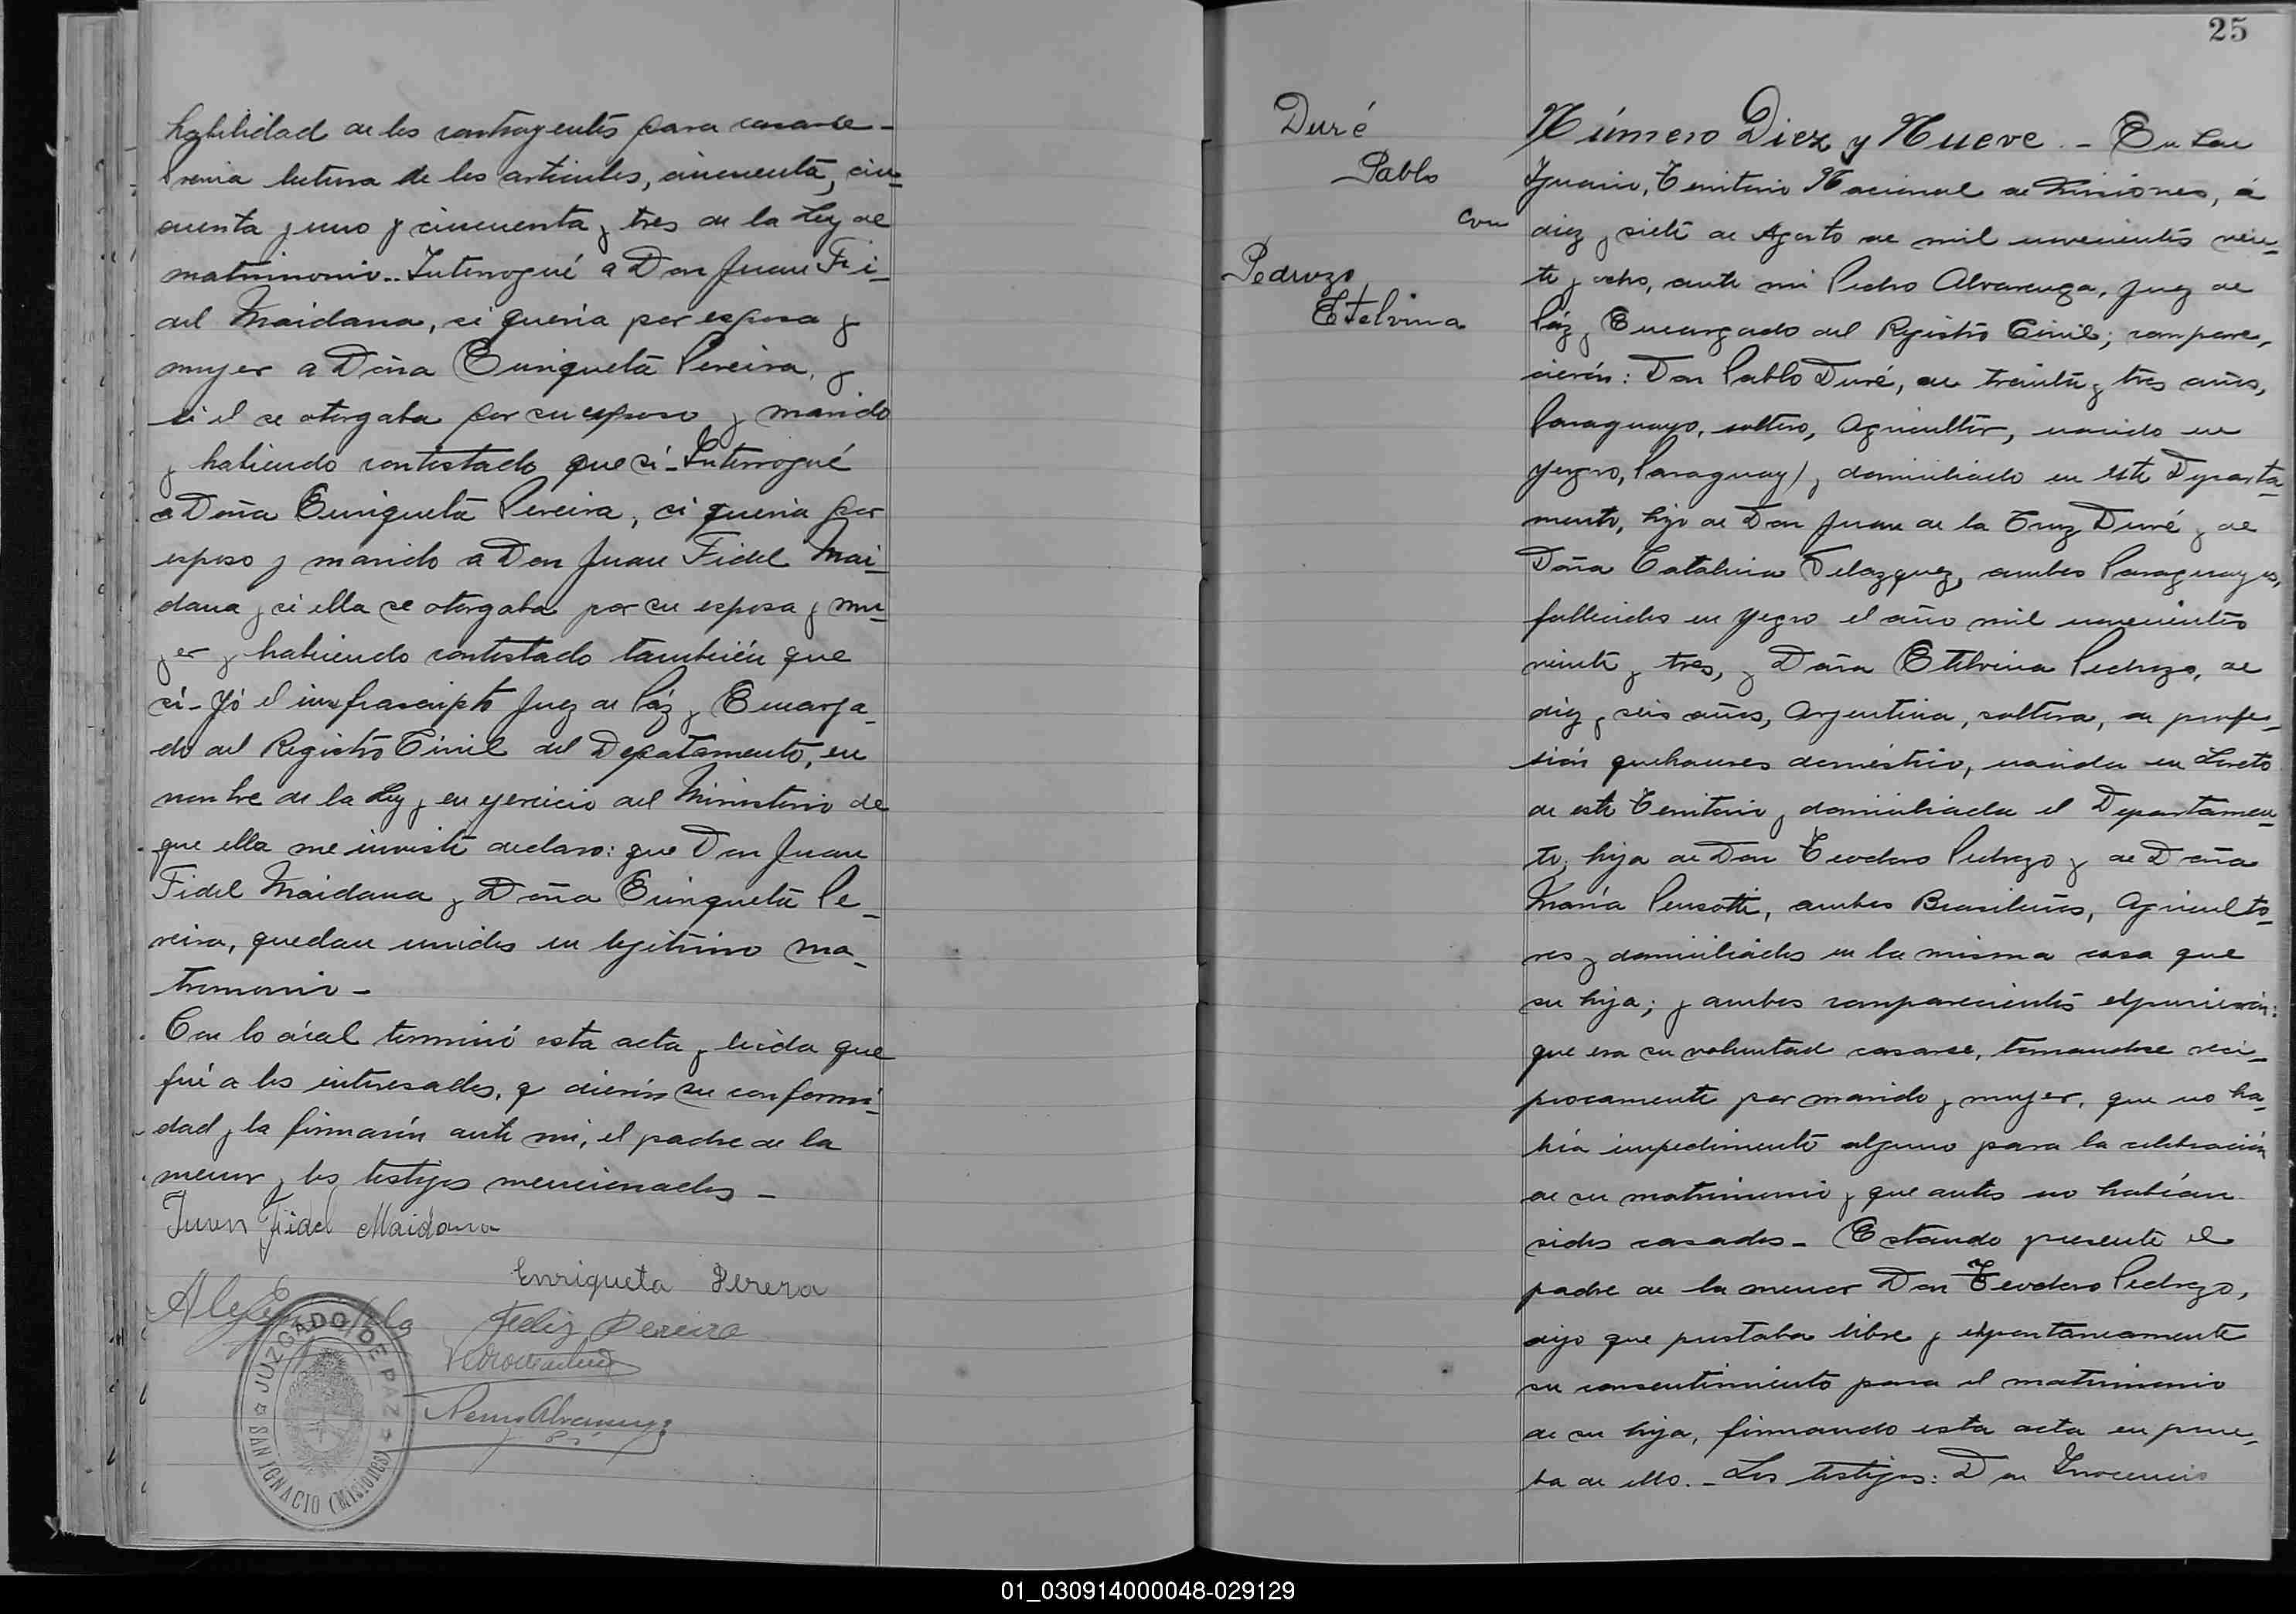 habilidad de los contrayentes para casarse -
Previa lectura de los articulos, cincuenta, cin-
cuenta y uno y cincuenta y tres de la Ley de
matrimonio.. Interrogué a Don Juan Fi-
del Maidana, si queria por esposa y
mujer a Doña Enriqueta Pereira, y
si el se otorgaba por su esposo y marido
y habiendo contestado que si - Interrogué
a Doña Enriqueta Pereira, si queria por
esposo y marido a Don Juan Fidel Mai-
dana y si ella se otorgaba por su esposa y mu-
jer y habiendo contestado también que
si - Yó el infrascripto Juez de Páz y Encarga-
do del Registro Civil del Departamento, en
nombre de la Ley y en ejercicio del Ministerio de
que ella me inviste declaro: que Don Juan
Fidel Maidana y Doña Enriqueta Pe-
reira, quedan unidos en legitimo ma-
tremonio -
Con lo cual terminó esta acta y leida que
fué a los interesados, y dierón su conformi-
dad y la firmarón ante mi, el padre de la
menor y los testigos mencionados -
Juan Fidel Maidana
Enriqueta Perera
Feliz Pereira
JUZGADO DE PAZ
SAN IGNACIO (MISIONES)
25
Duré
Pablo
con
Pedrozo
Etelvina
Número Diez y Nueve. - En San
Ignacio, Territorio Nacional de Misiones, á
diez y siete de Agosto de mil novecientos vein-
te y ocho, ante mi Pedro Alvarenga, Juez de
Páz y Encargado del Registro Civil; compare-
cierón: Don Pablo Duré, de treinta y tres años,
Paraguayo, soltero, Agricultor, nacido en
Yegros, Paraguay), domiciliado en este Departa-
mento, hijo de Don Juan de la Cruz Duré y de
Doña Catalina Velazquez, ambos Paraguayos,
fallecidos en Yegro el año mil novecientos
veinte y tres, y Doña Etelvina Pedrozo, de
diez y seis años, Argentina, soltera, de profe-
sión quehaceres doméstico, nacida en Loreto
de este Territorio y domiciliada el Departamen-
to, hija de Don Teodoro Pedrozo y de Doña
María Pensotti, ambos Brasileños, Agriculto-
res y domiciliados en la misma casa que
su hija; y ambos comparecientes expusierón:
que era su voluntad casarse, tomandose reci-
procamente por marido y mujer, que no ha-
bía impedimento alguno para la celebración
de su matrimonio y que antes no habían
sidos casados - Estando presente el
padre de la menor Don Teodoro Pedrozo,
dijo que prestaba libre y espontaneamente
su consentimiento para el matrimonio
de su hija, firmando esta acta en prue-
ba de ello. - Los testigos: Don Inocencio
01_030914000048-029129